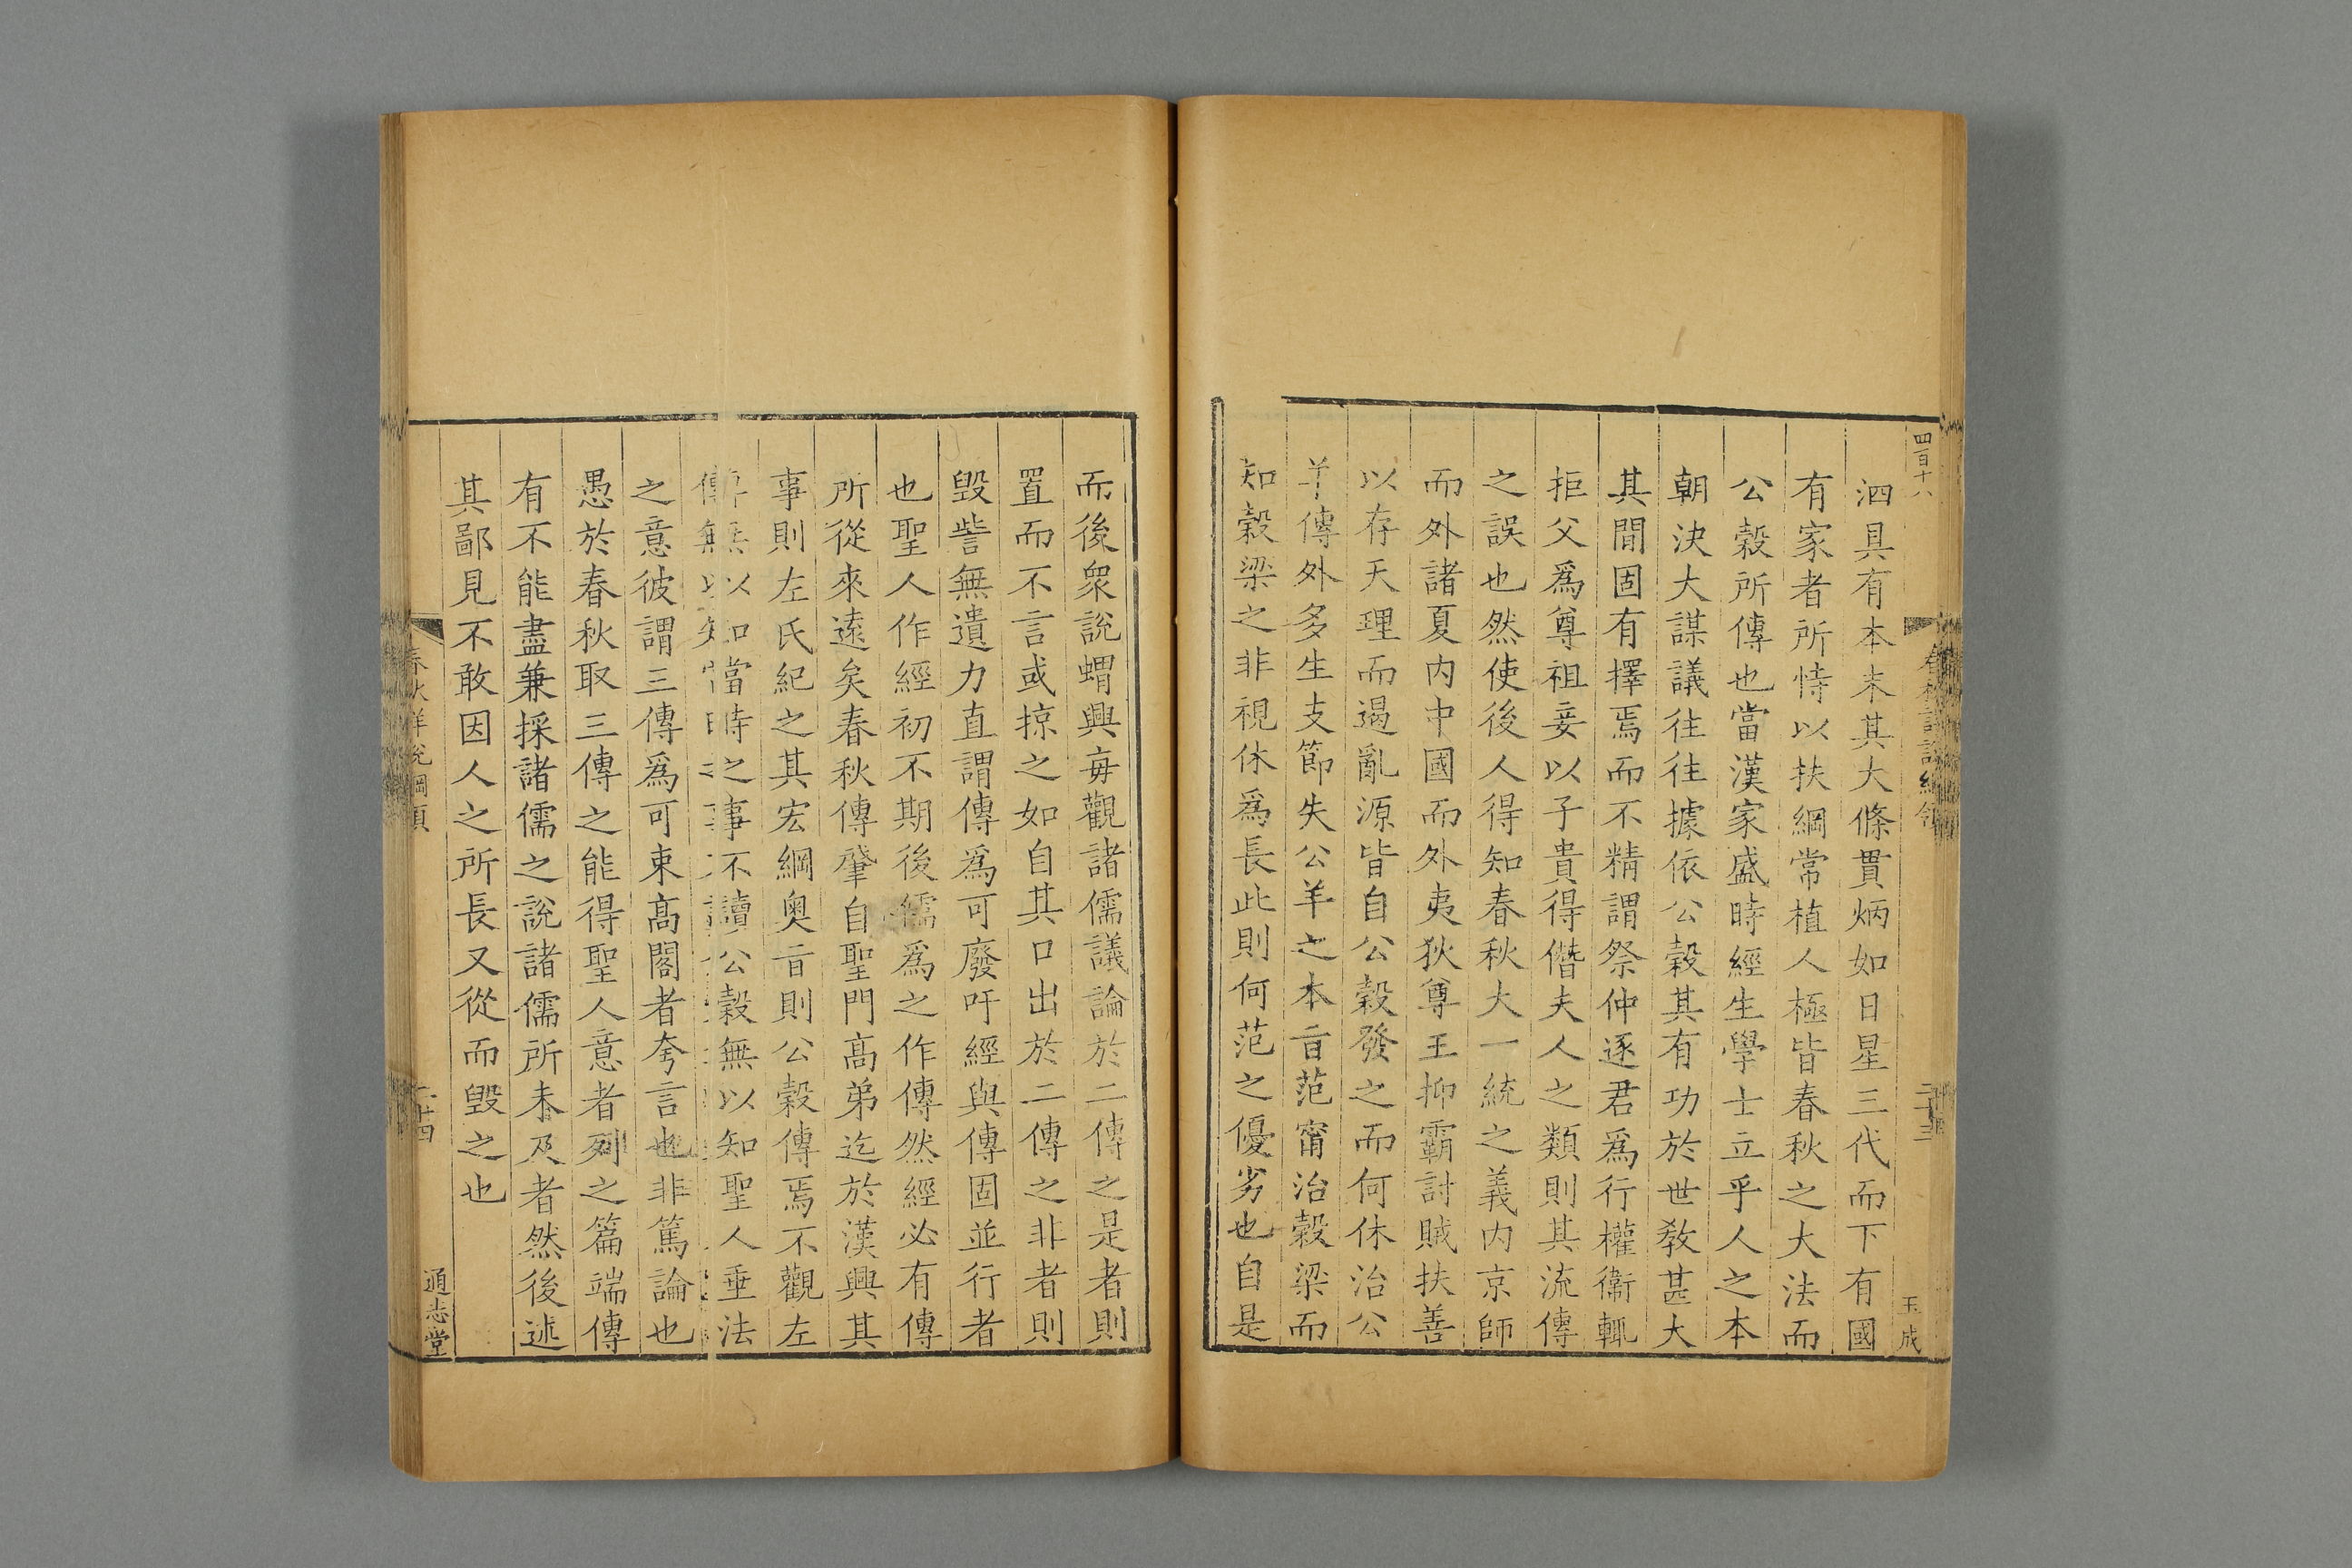 四百十八
玉成
泗具有本末其大條貫炳如日星三代而下有國
有家者所恃以扶綱常植人極皆春秋之大法而
公穀所傳也當漢家盛時經生學士立乎人之本
朝決大謀議往往據依公穀其有功於世教甚大
其間固有擇焉而不精謂祭仲逐君爲行權衞輒
拒父爲尊祖妾以子貴得僭夫人之類則其流傳
之誤也然使後人得知春秋大一統之義内京師
而外諸夏内中國而外夷狄尊王抑霸討賊扶善
以存天理而遏亂源皆自公穀發之而何休治公
羊傳外多生支節失公羊之本㫖范甯治穀梁而
知穀梁之非視休爲長此則何范之優劣也自是
而後衆說蝟興毎觀諸儒議論於二傳之是者則
置而不言或掠之如自其口出於二傳之非者則
毀訾無遺力直謂傳爲可廢吁經與傳固並行者
也聖人作經初不期後儒爲之作傳然經必有傳
所從來遠矣春秋傳肇自聖門髙弟迄於漢興其
事則左氏紀之其宏綱奥㫖則公穀傳焉不觀左
傳無以知當時之事不讀公穀無以知聖人垂法
之意彼謂三傳爲可束髙閣者夸言也非篤論也
愚於春秋取三傳之能得聖人意者列之篇端傳
有不能盡兼採諸儒之說諸儒所未及者然後述
其鄙見不敢因人之所長又從而毀之也
春秋詳說綱領
二十四
通志堂